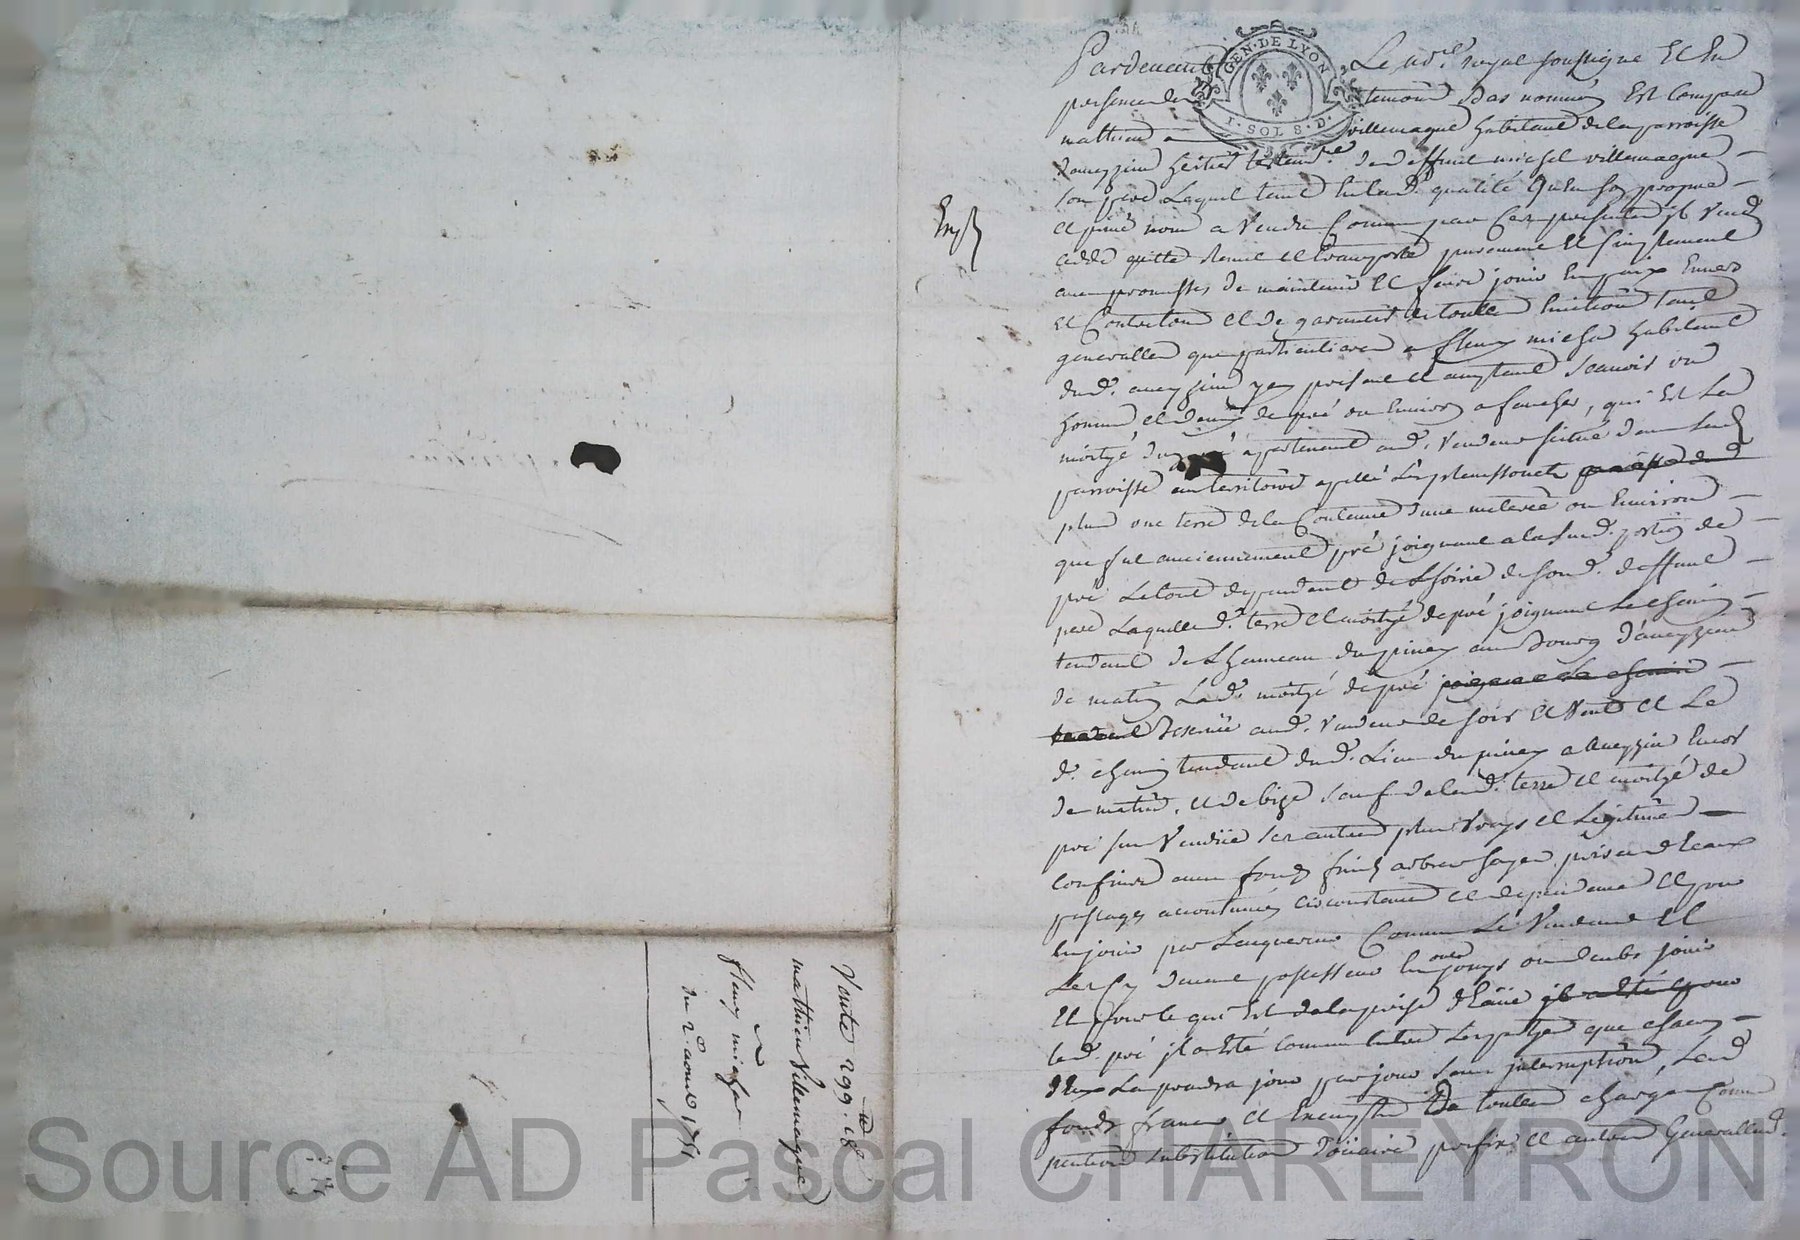 Pardevant Le no.re royal soussigné Et En
presence des temoins bas nommés Est Comparu
mathieu villemagne habitant de la parroisse
daveyzieu heritier testam.re de deffunt michel villemagne
son pere Lequel tant En lad. qualité Qu'En son propre
et privé nom a Vendu Comme par Ces presentes il Vend
cedde quitte remet et transporte purement Et simplement
avec promesses de maintenir Et faire jouir En paix Envers
Et Contre tous et de garantir de touttes Evictions tant
generalles que particulieres a fleury micha habitant
dud. aveyzieu yci present et acceptant scavoir un
homme et demy de pré ou Environ a faucher, qui Est La
moityé du pré appartenant aud. Vendeur scitué dans lad.
parroisse au territoire apellé
plus une terre de la Contenue d'une meterée ou Environ
que fut anciennement pré joignant a la susd. portion de
pré Le tout dependant de L'hoirie de sond. deffunt
pere Laquelle d. terre et moityé de pré joignant Le chemin
tendant de L'hameau du pinay au Bourg d'aveyzieu
de matin Lad. moityé de pré joignant Le chemin
tendant Reservée aud. Vendeur de soir Et Vent et Le
d. chemin tendant dud. Lieu du pinay a aveyzieu Encor
de matin, et de bize sauf de lad. terre et moityé de
pré sus Vendue ses autres plus Vrays et Legitimes
confins avec fonds fruits arbres hayes prises d'Eaux
passages accoutumés circonstances et dependances Et pour
En jouir par Lacquereur Comme Le Vendeur Et
Les Cy devant possesseurs En ont jouys ou deubs jouir
Et pour ce qui Est de la prise d'Eau il a Esté pour
led. pré il a Esté convenu Entre Les parties que chacun
d'Eux La prendra jour par jour sans interruption, Led.
fonds franc et Exempt De touttes charges Comme
pention substitution Doüaire prefix et autres Generallem.t
GEN·DE LYON
1·SOL 8·D·
Vente 299.tt 18 s
mathieu Villemagne
a
fleury micha
du 2e aoust 1751
Source AD Pascal CHAREYRON